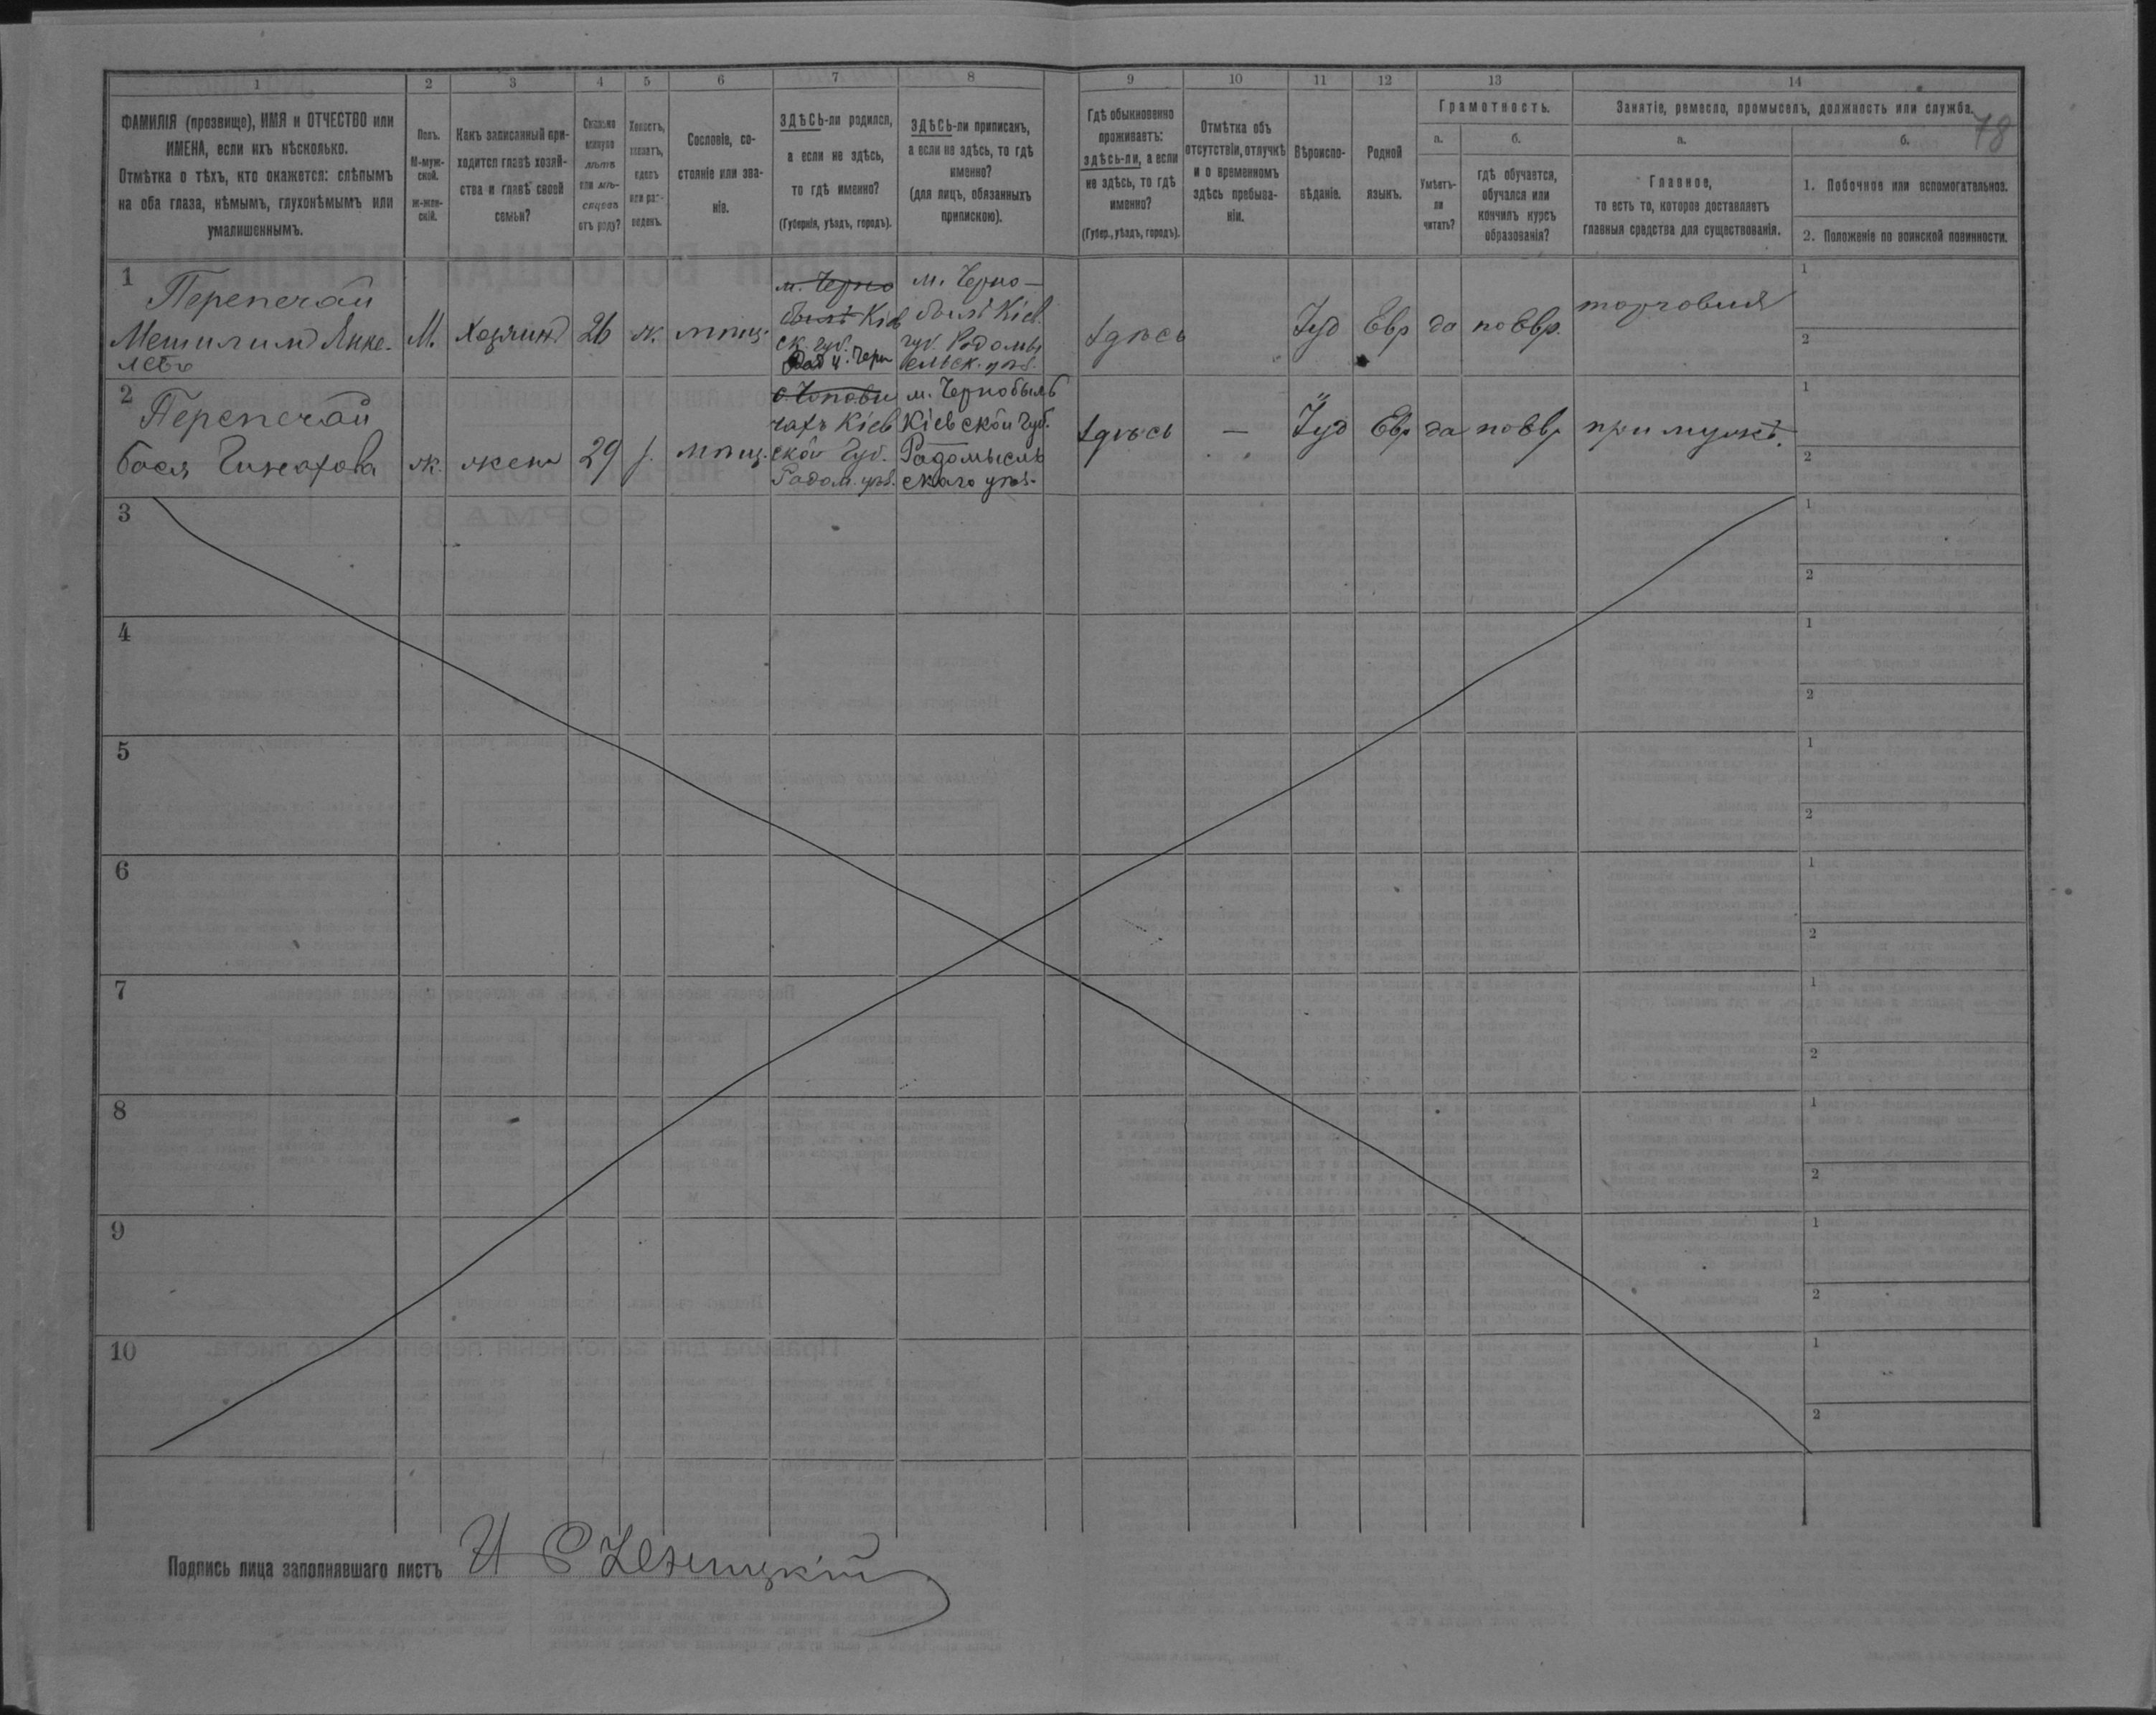 78
1 2 3 4 5 6 7 8 9 10 11 12 13 14
ФАМИЛІЯ (прозвище), ИМЯ и ОТЧЕСТВО или
ИМЕНА, если ихъ нѣсколько.
Отмѣтка о тѣхъ, кто окажется: слѣпымъ
на оба глаза, нѣмымъ, глухонѣмымъ или
умалишеннымъ.
Полъ.
М-муж-
ской.
ж-жен-
скій.
Какъ записанный при-
ходится главѣ хозяй-
ства и главѣ своей
семьи?
Сколько
минуло
лѣтъ
или мѣ-
сяцевъ
отъ роду?
Холостъ,
женатъ,
вдовъ
или раз-
веденъ.
Сословіе, со-
стояніе или зва-
ніе.
ЗДѢСЬ-ли родился,
а если не здѣсь,
то гдѣ именно?
(Губернія, уѣздъ, городъ).
ЗДѢСЬ-ли приписанъ,
а если не здѣсь, то гдѣ
именно?
(для лицъ, обязанныхъ
припискою).
Гдѣ обыкновенно
проживаетъ:
здѣсь-ли, а если
не здѣсь, то гдѣ
именно?
(Губер., уѣздъ, городъ).
Отмѣтка объ
отсутствіи, отлучкѣ
и о временномъ
здѣсь пребыва-
ніи.
Вѣроиспо-
вѣданіе.
Родной
языкъ.
Грамотность.
а.
Умѣетъ-
ли
читать?
б.
гдѣ обучается,
обучался или
кончилъ курсъ
образованія?
Занятіе, ремесло, промыселъ, должность или служба.
а.
Главное,
то есть то, которое доставляетъ
главныя средства для существованія.
б.
1. Побочное или вспомогательное.
2. Положеніе по воинской повинности.
1
Перепечай
Мешилим Янке-
левъ
М.
Хозяинъ
26
ж.
мѣщ.
м. Черно
былѣ Кіев
ск. губ.
м. Черно-
былѣ Кіев.
губ. Радомы
сльск. уѣз.
здѣсь
Іуд
Евр
да
по Евр.
торговия
1
2
2
Перепечай
Бася
ж.
жена
29
з.
мѣщ.
чахъ Кіев
ской Губ.
Радом. уѣз.
м. Чернобыль
Кіевской Губ.
Радомысль
скаго уѣз.
здѣсь
—
Іуд
Евр
да
по Евр
при мужѣ.
1
2
3
1
2
4
1
2
5
1
2
6
1
2
7
1
2
8
1
2
9
1
2
10
1
2
Подпись лица заполнявшаго листъ